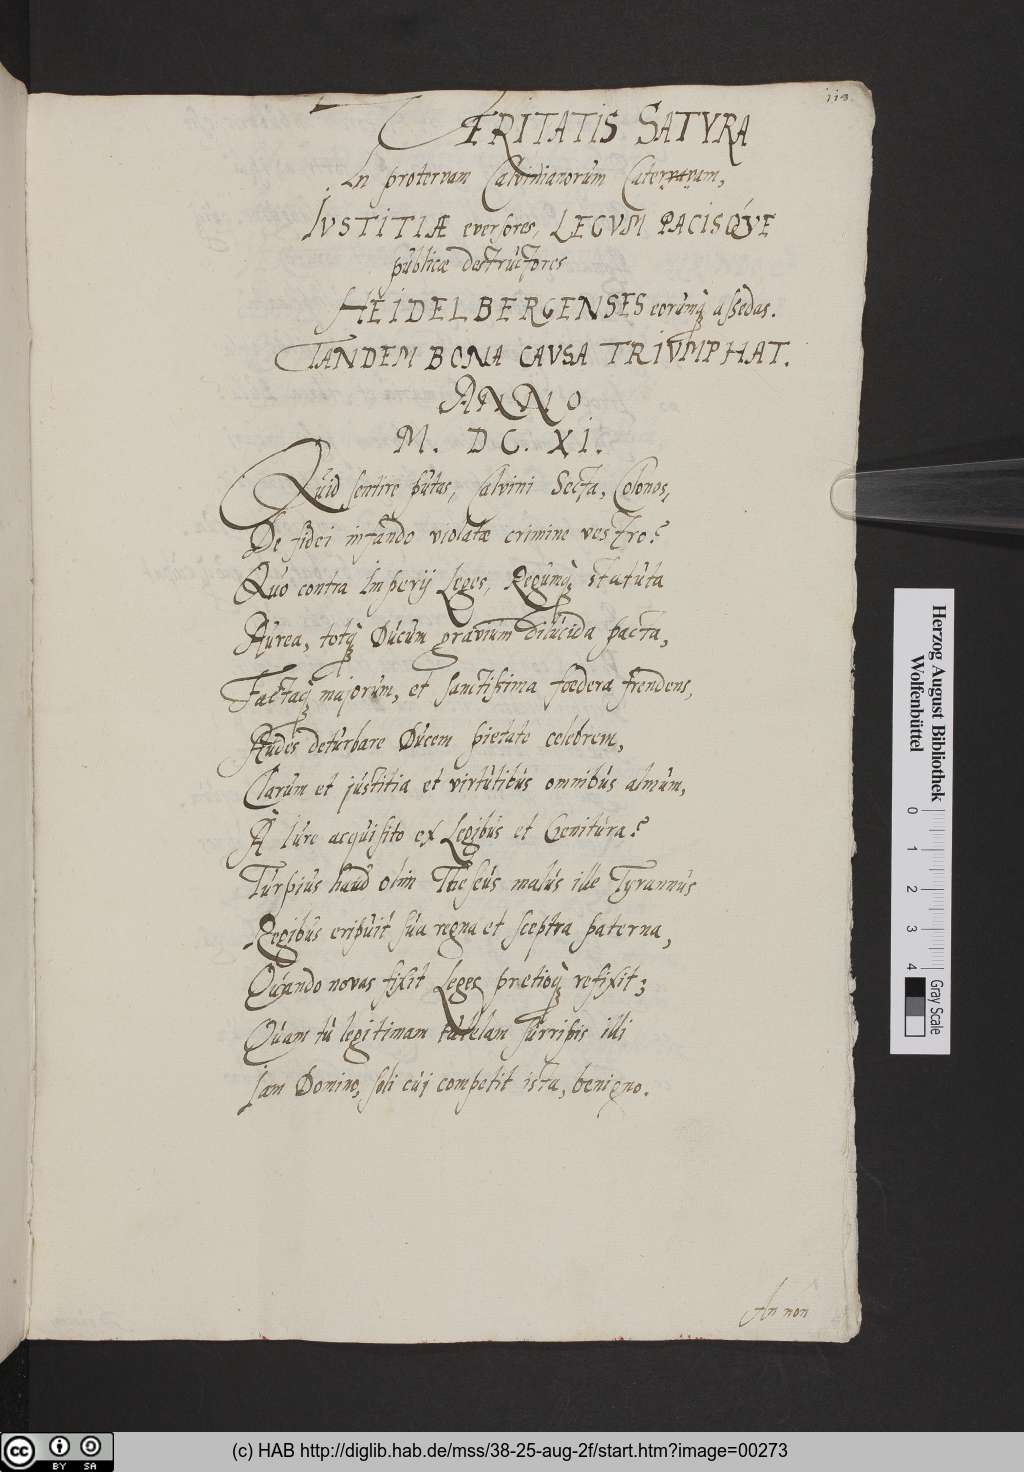 113
VERITATIS SATYRA
In protervam Calvinianorum Catervam,
IVSTITIÆ eversores, LEGVM PACISQVE
publicæ destructores
HEIDELBERGENSES eorumq; assedas.
TANDEM BONA CAVSA TRIVMPHAT.
ANNO
M. DC. XI.
Quid sentire putas, Calvini Secta, Colonos,
De fidei infando violatæ crimine vestro?
Quo contra Imperij Leges, Regumq; statuta
Aurea, totq; Ducum gravium dilucida pacta,
Factaq; majorum, et sanctissima fœdera frendens,
Audes deturbare Ducem pietate celebrem,
Clarum et justitia et virtutibus omnibus almum,
A Iure acquisito ex Legibus et Genitura?
Turpius haud olim Theseus malus ille Tyrannus
Regibus eripuit sua regna et sceptra paterna,
Quando novas fixit Leges pretioq; refixit;
Quam tu legitimam tutelam surripis illi
Iam Domino, soli cui competit ista, benigno.
An non
Herzog August Bibliothek
Wolfenbüttel
0 1 2 3 4
Gray Scale
cc BY SA
(c) HAB http://diglib.hab.de/mss/38-25-aug-2f/start.htm?image=00273